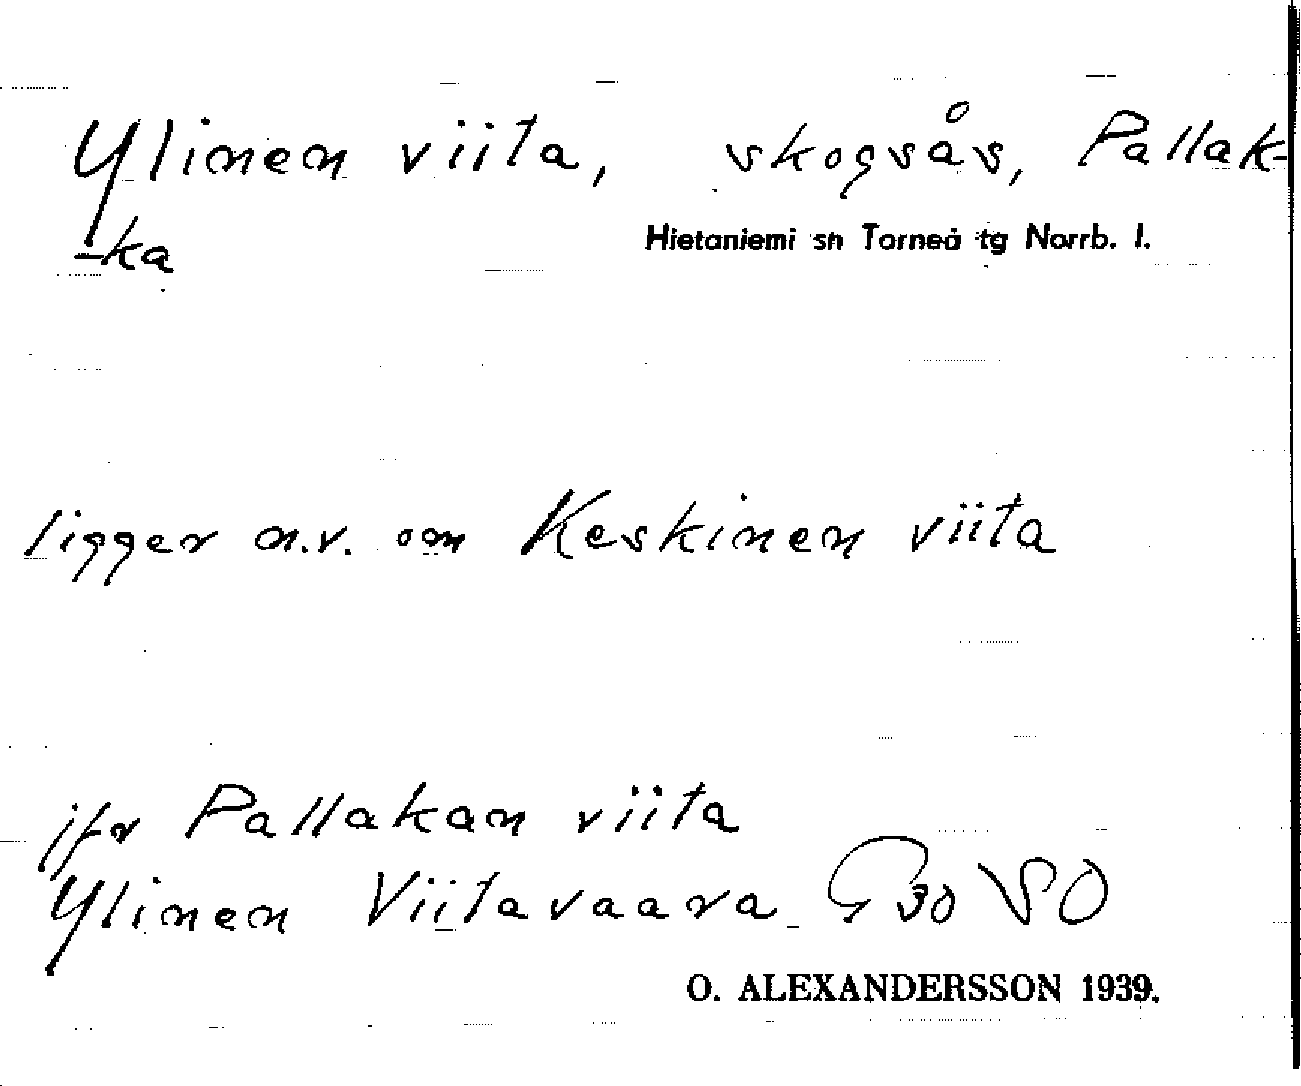 Ylinen viita, skogsås, Pallak-
-ka
Hietaniemi sn Torneå tg Norrb. l.
ligger n.v. om Keskinen viita
jfr Pallakan viita
Ylinen Viitavaara G 30 SO
O. ALEXANDERSSON 1939.